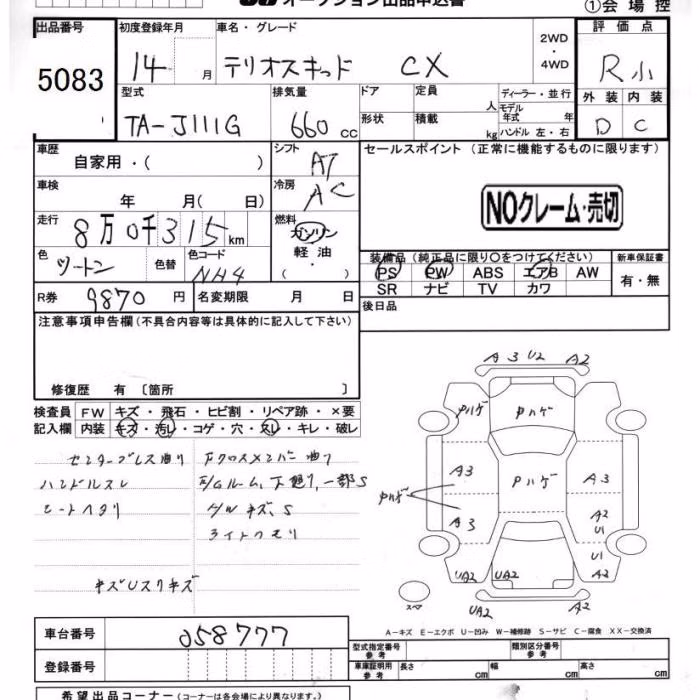 オークション出品申込書
①会場控
出品番号 初度登録年月 車名・グレード 2WD・4WD 評価点
5083 14 月 テリオスキッド CX R小
型式 排気量 ドア 定員 人 ディーラー・並行 外装 内装
TA-J111G 660 cc 形状 積載 kg モデル年式 年 ハンドル 左・右 D C
車歴 自家用・( ) シフト AT セールスポイント (正常に機能するものに限ります)
車検 年 月( 日) 冷房 AC NOクレーム・売切
走行 8万0千315km 燃料 ガソリン 軽油
色 ツートン 色替 色コード NH4 装備品 (純正品に限り○をつけてください) 新車保証書
PS PW ABS エアB AW 有・無
SR ナビ TV カワ
R券 9870 円 名変期限 月 日 後日品
注意事項申告欄(不具合内容等は具体的に記入して下さい)
修復歴 有 〔箇所 〕
検査員 FW キズ・飛石・ヒビ割・リペア跡・×要
記入欄 内装 キズ・汚レ・コゲ・穴・スレ・キレ・破レ
ハンドルスレ
シートヘタリ
ライトクモリ
A3 U2 A2
Pハゲ Pハゲ
A3 Pハゲ A3
Pハゲ
A3 A2
U1
U1
UA2 UA2 A2
スペア UA2 A2
A-キズ E-エクボ U-凹み W-補修跡 S-サビ C-腐食 XX-交換済
車台番号 058777
登録番号
型式指定番号 参考 類別区分番号 参考
車庫証明用 参考 長さ cm 幅 cm 高さ cm
希望出品コーナー (コーナーは各会場により異なります。)